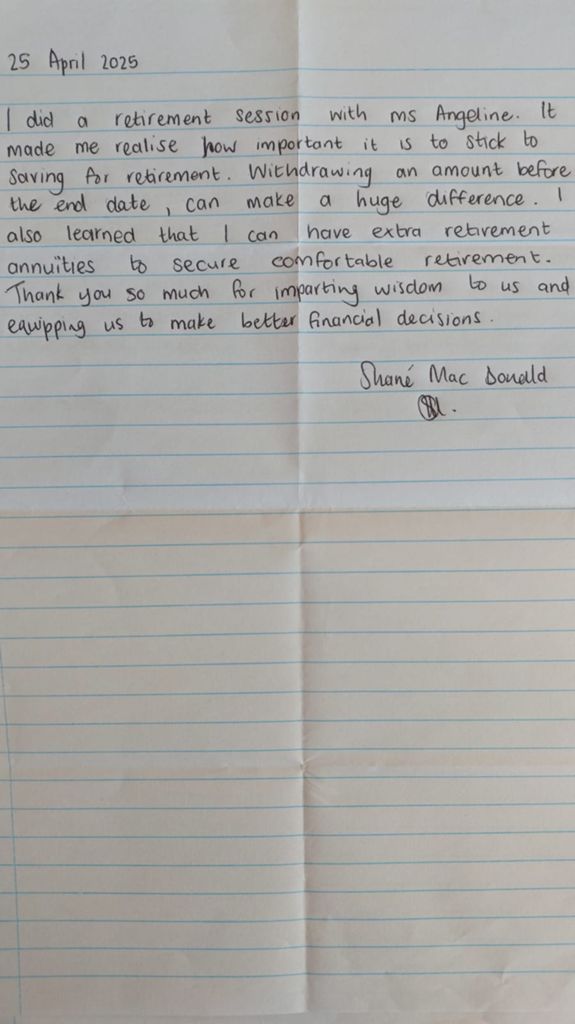 25 April 2025
I did a retirement session with ms Angeline. It
made me realise how important it is to stick to
saving for retirement. Withdrawing an amount before
the end date, can make a huge difference. I
also learned that I can have extra retirement
annuities to secure comfortable retirement.
Thank you so much for imparting wisdom to us and
equipping us to make better financial decisions.
Shané Mac Donald